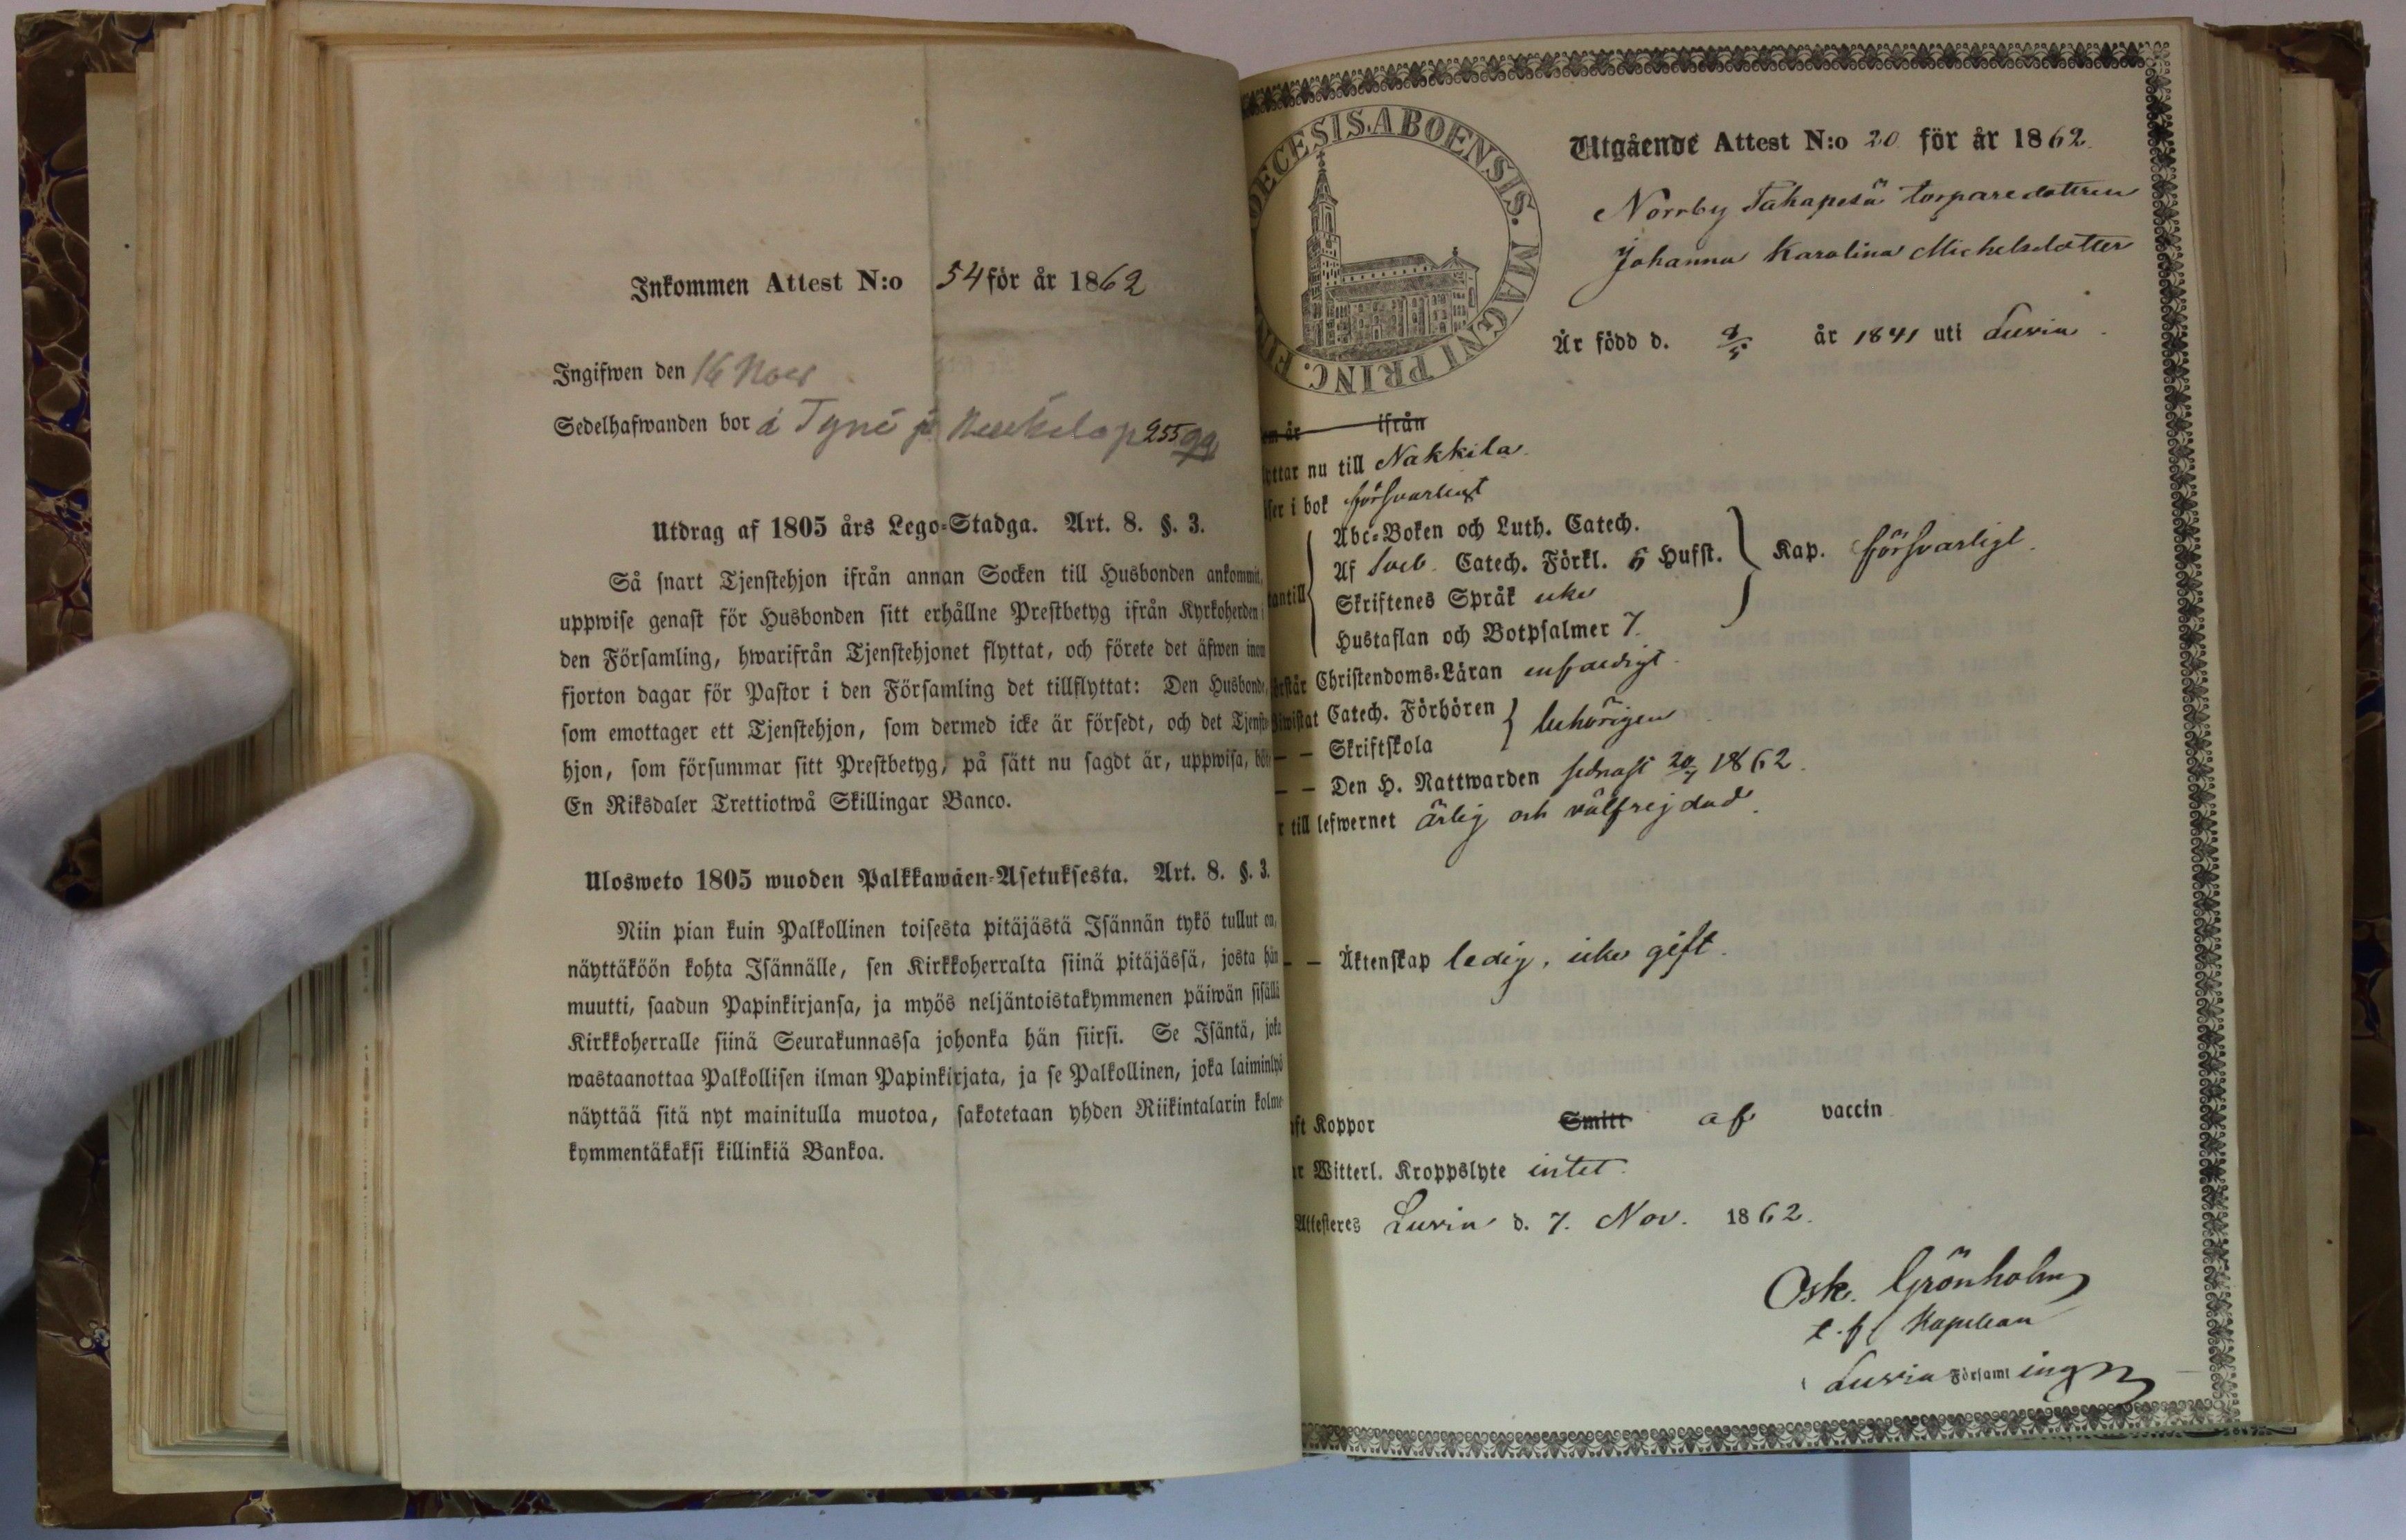 Inkommen Attest N:o 54 för år 1862
Ingifwen den 16 Nov
Sedelhafwanden bor å Tyni 255
Utdrag af 1805 års Lego-Stadga. Art. 8. §. 3.
Så snart Tjenstehjon ifrån annan Socken till Husbonden ankommit,
uppwise genast för Husbonden sitt erhållne Prestbetyg ifrån Kyrkoherden i
den Församling, hwarifrån Tjenstehjonet flyttat, och förete det äfwen inom
fjorton dagar för Pastor i den Församling det tillflyttat: Den Husbonde,
som emottager ett Tjenstehjon, som dermed icke är försedt, och det Tjenste
hjon, som försummar sitt Prestbetyg, på sätt nu sagdt är, uppwisa, böte
En Riksdaler Trettiotwå Skillingar Banco.
Ulosweto 1805 wuoden Palkkawäen-Asetuksesta. Art. 8. §. 3.
Niin pian kuin Palkollinen toisesta pitäjästä Isännän tykö tullut on,
näyttäköön kohta Isännälle, sen Kirkkoherralta siinä pitäjässä, josta hän
muutti, saadun Papinkirjansa, ja myös neljäntoistakymmenen päiwän sisällä
Kirkkoherralle siinä Seurakunnassa johonka hän siirsi. Se Isäntä, joka
wastaanottaa Palkollisen ilman Papinkirjata, ja se Palkollinen, joka laiminlyö
näyttää sitä nyt mainitulla muotoa, sakotetaan yhden Riikintalarin kolme-
kymmentäkaksi killinkiä Bankoa.
OECESIS. ABOENSIS. MAGNI PRINC. FIN
Utgående Attest N:o 20 för år 1862.
Norrby Tahapesä torparedottren
Johanna Karolina Michelsdotter
Är född d. år 1841 uti Luvia.
om är ifrån
lyttar nu till Nakkila.
ser i bok försvarligt
Abc-Boken och Luth. Catech.
Af Sveb. Catech. Förkl. 5 Hufst. Kap. försvarligt.
antill Skriftenes Språk icke
Hustaflan och Botpsalmer 7.
örstår Christendoms-Läran enfaldigt.
iwistat Catech. Förhören behörigen
— — Skriftskola
— — Den H. Nattwarden sednast 1862.
r till lefwernet ärlig och välfrejdad.
— — Äktenskap ledig, icke gift.
aft Koppor Smitt af vaccin
r Witterl. Kroppslyte intet.
Attesteres Luvia d. 7. Nov. 1862.
Osk. Grönholm
t. f. Kapellan
Luvia Församl ing